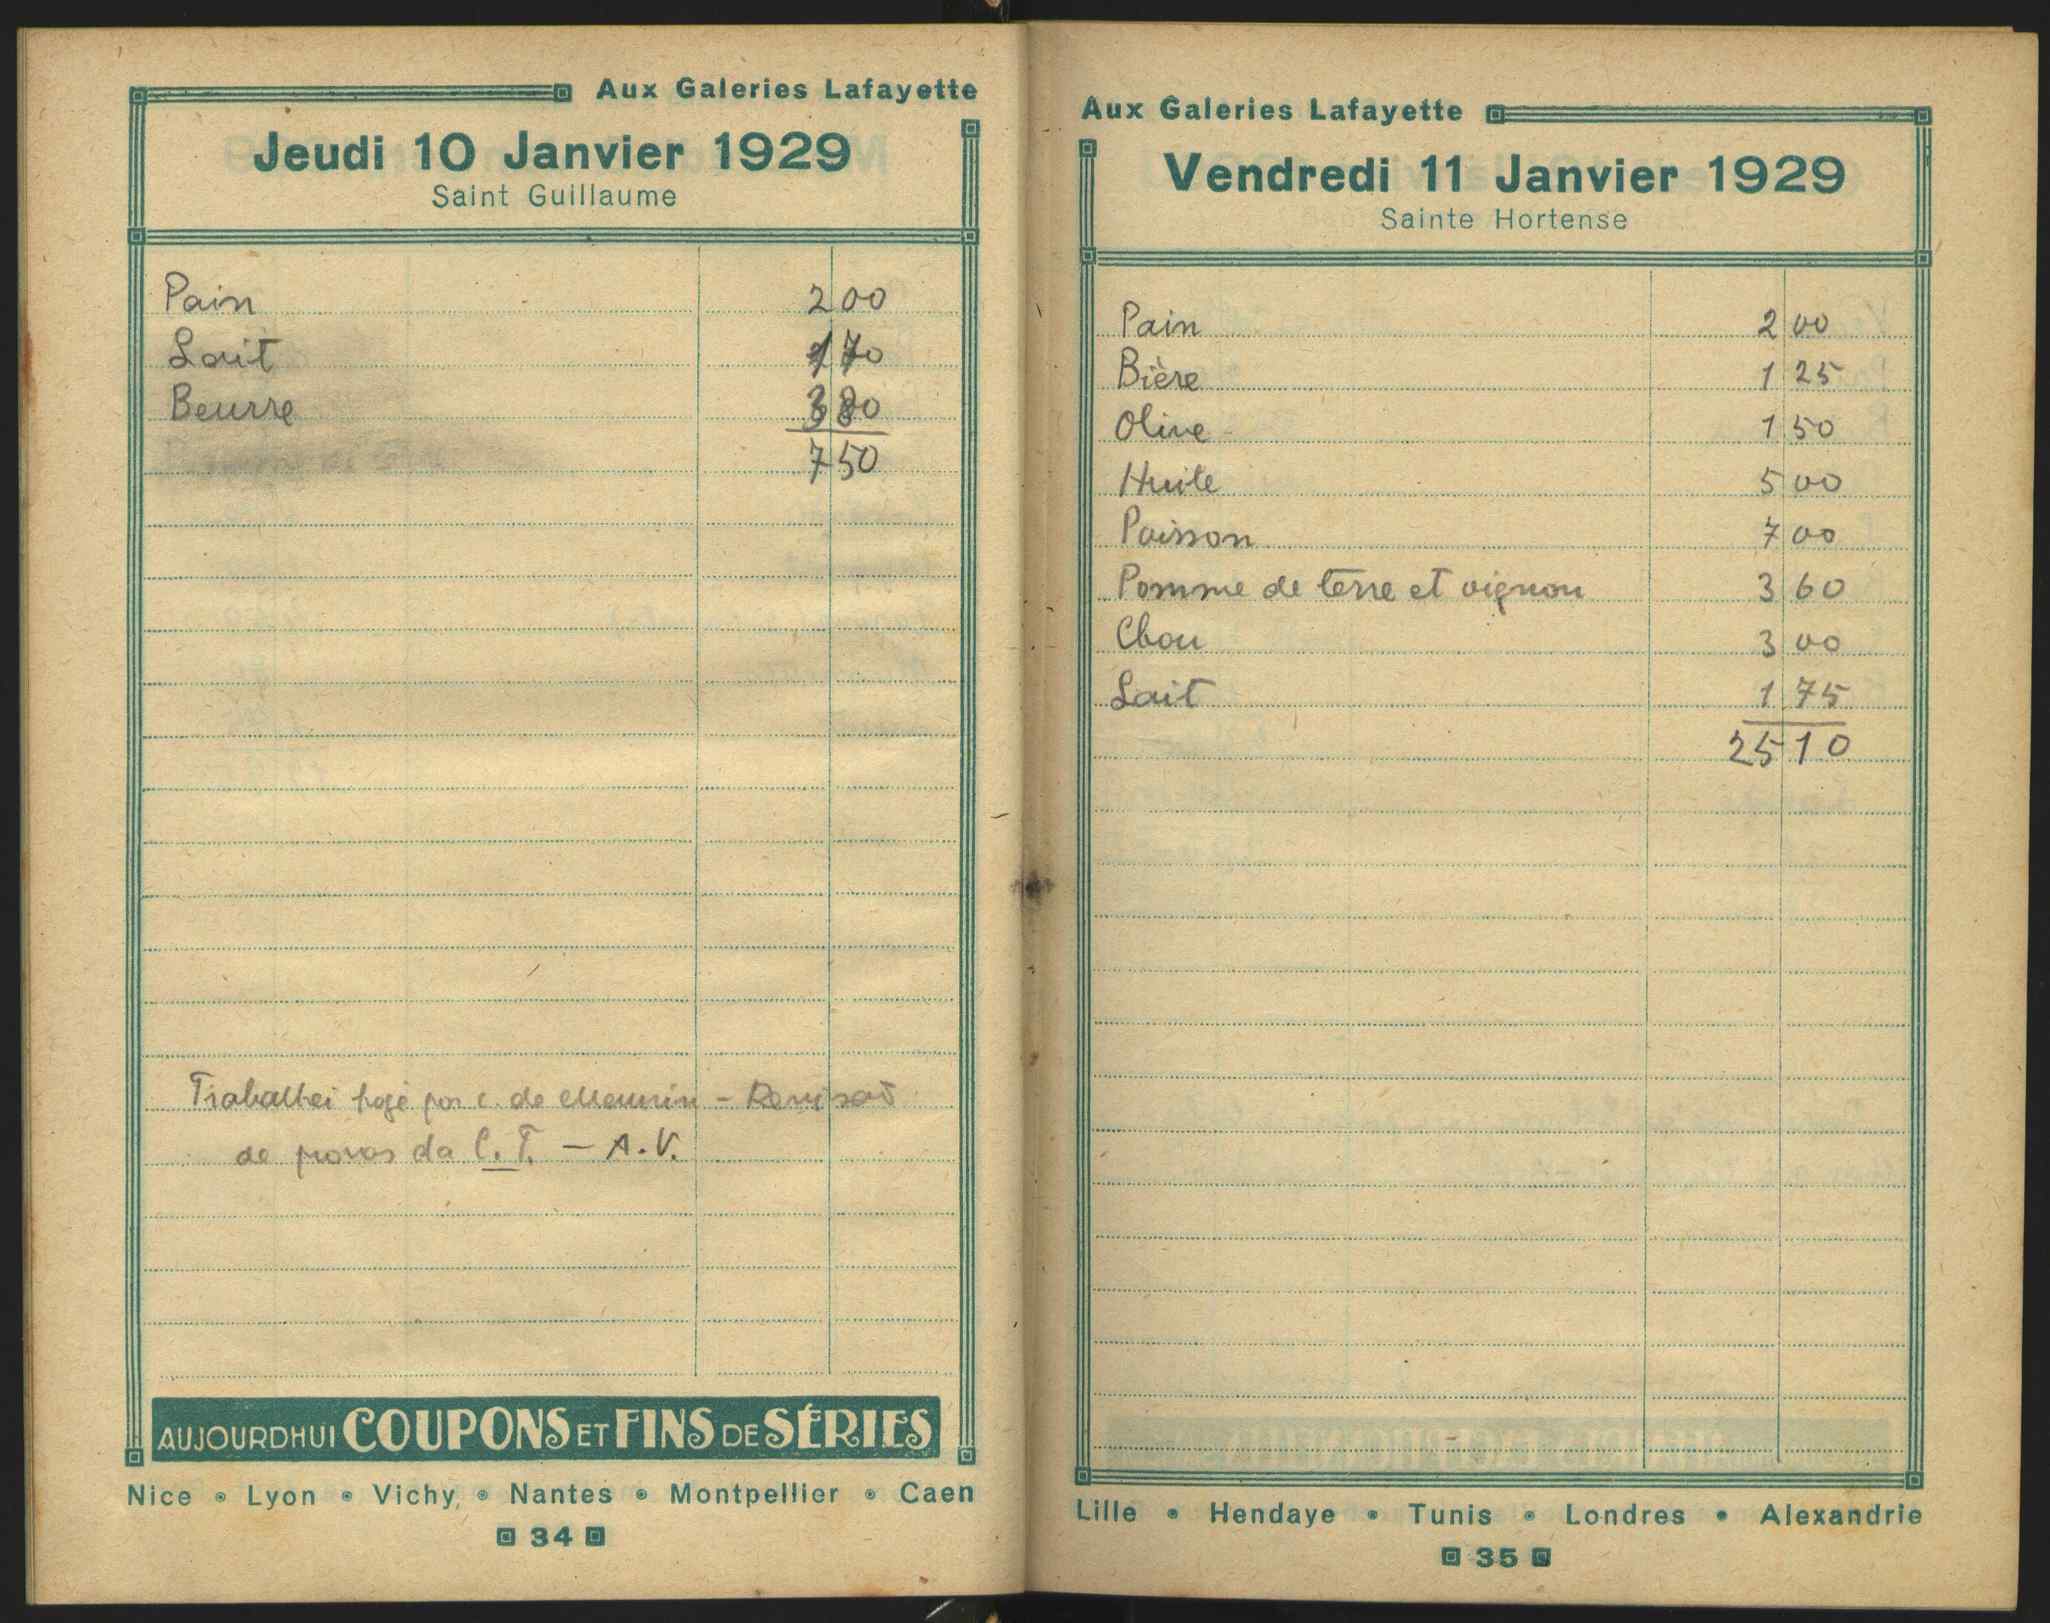 Aux Galeries Lafayette
Jeudi 10 Janvier 1929
Saint Guillaume
Pain 2 00
Lait 1 70
Beurre 3 80
7 50
Trabalhei hoje por c. de Meunin - Revisão
de provas da C. T. - A. V.
AUJOURDHUI COUPONS ET FINS DE SÉRIES
Nice • Lyon • Vichy • Nantes • Montpellier • Caen
34
Aux Galeries Lafayette
Vendredi 11 Janvier 1929
Sainte Hortense
Pain 2 00
Bière 1 25
Olive 1 50
Huile 5 00
Poisson 7 00
Pomme de terre et oignon 3 60
Chou 3 00
Lait 1 75
25 10
Lille • Hendaye • Tunis • Londres • Alexandrie
35